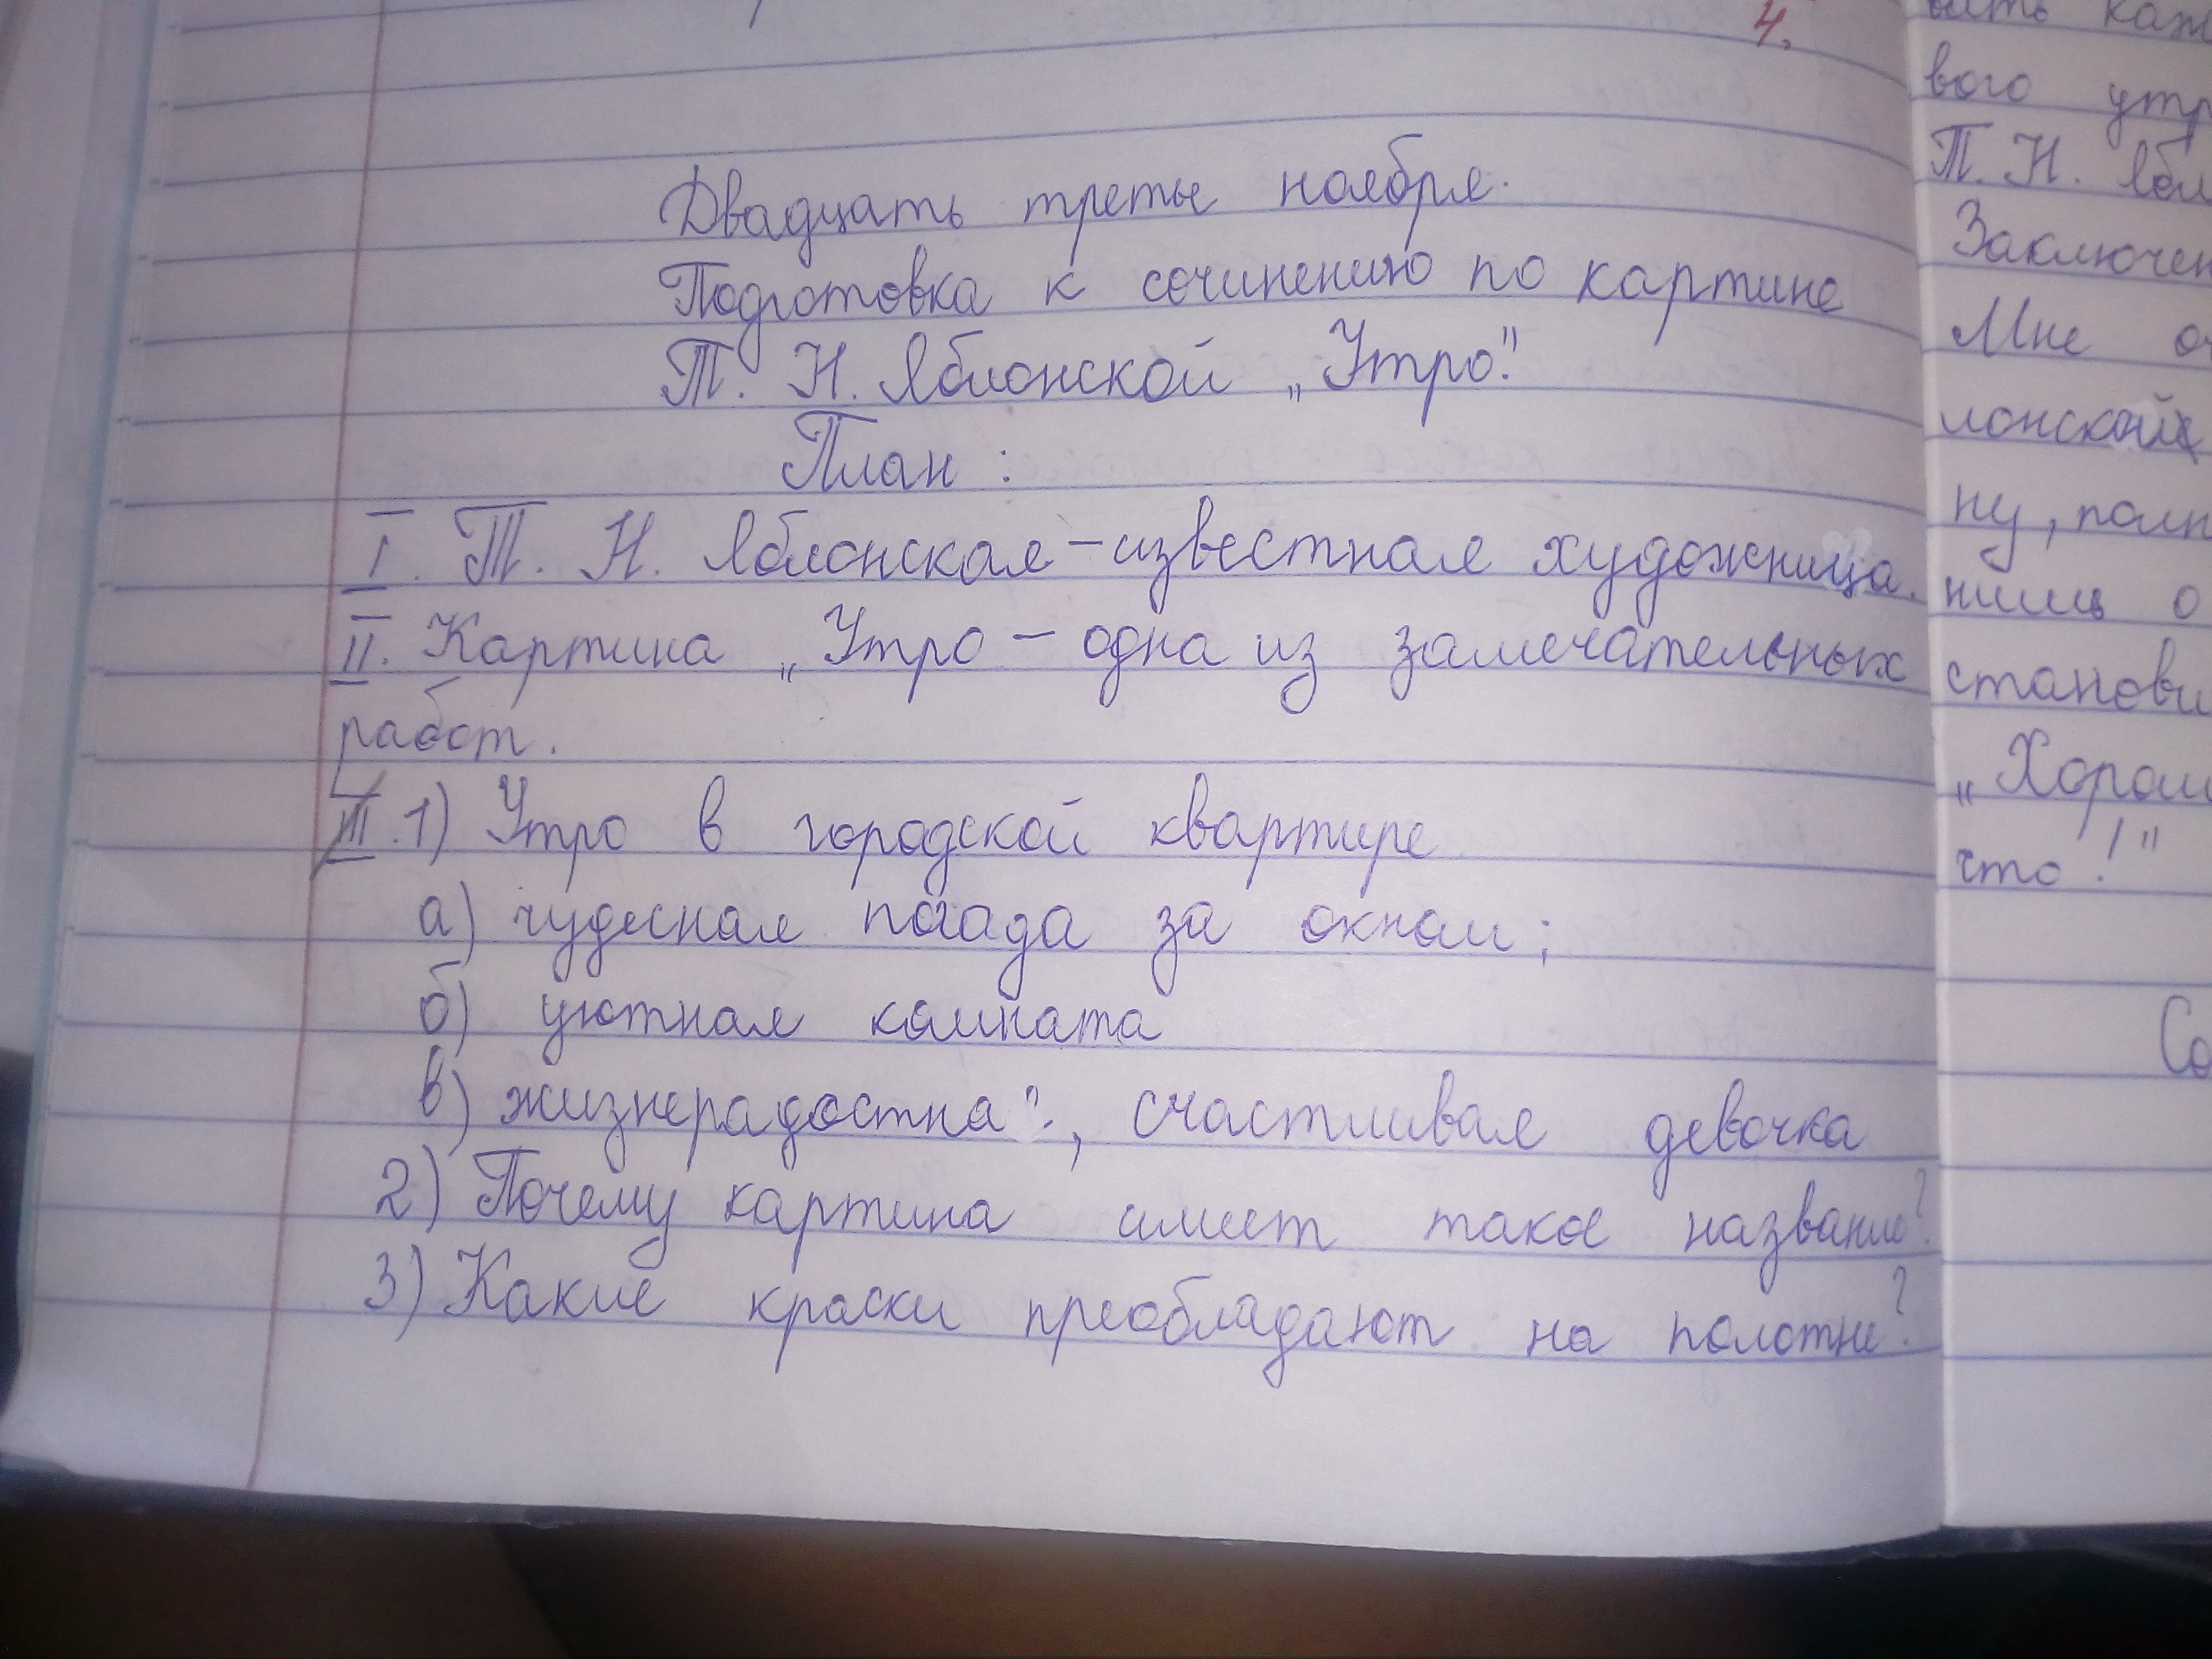 4.
Двадцать третье ноября.
Подготовка к сочинению по картине
Т. Н. Яблонской „Утро".
План:
I. Т. Н. Яблонская – известная художница.
II. Картина „Утро – одна из замечательных
работ.
III. 1) Утро в городской квартире
а) чудесная погода за окном;
б) уютная комната
в) жизнерадостна, счастливая девочка
2) Почему картина имеет такое название?
3) Какие краски преобладают на полотне?
каж
вого утр
Т. Н. Ябл
Заключен
Мне оч
лонской
ну, полн
нишь о
станови
„Хорош
что!"
Со